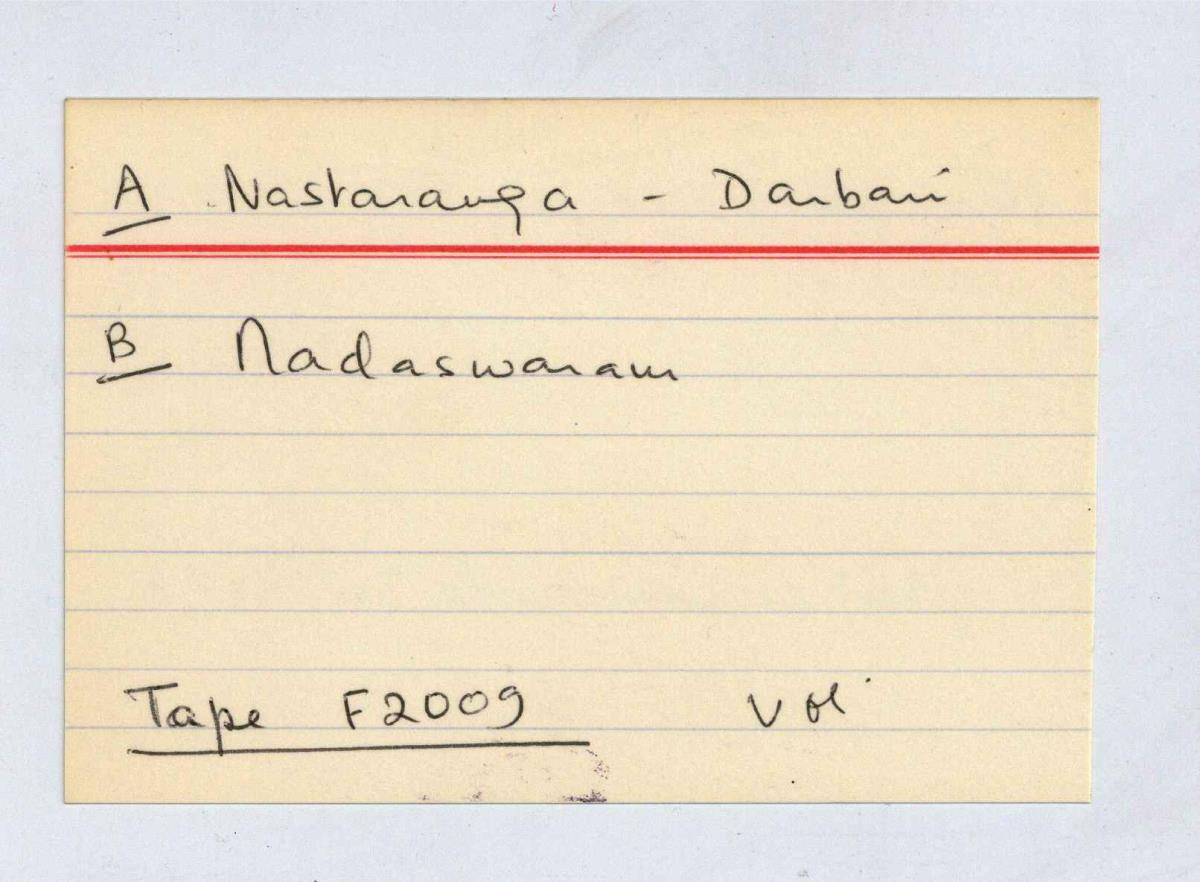 A Nastaranga - Darbari
B Nadaswaram
Tape F2009